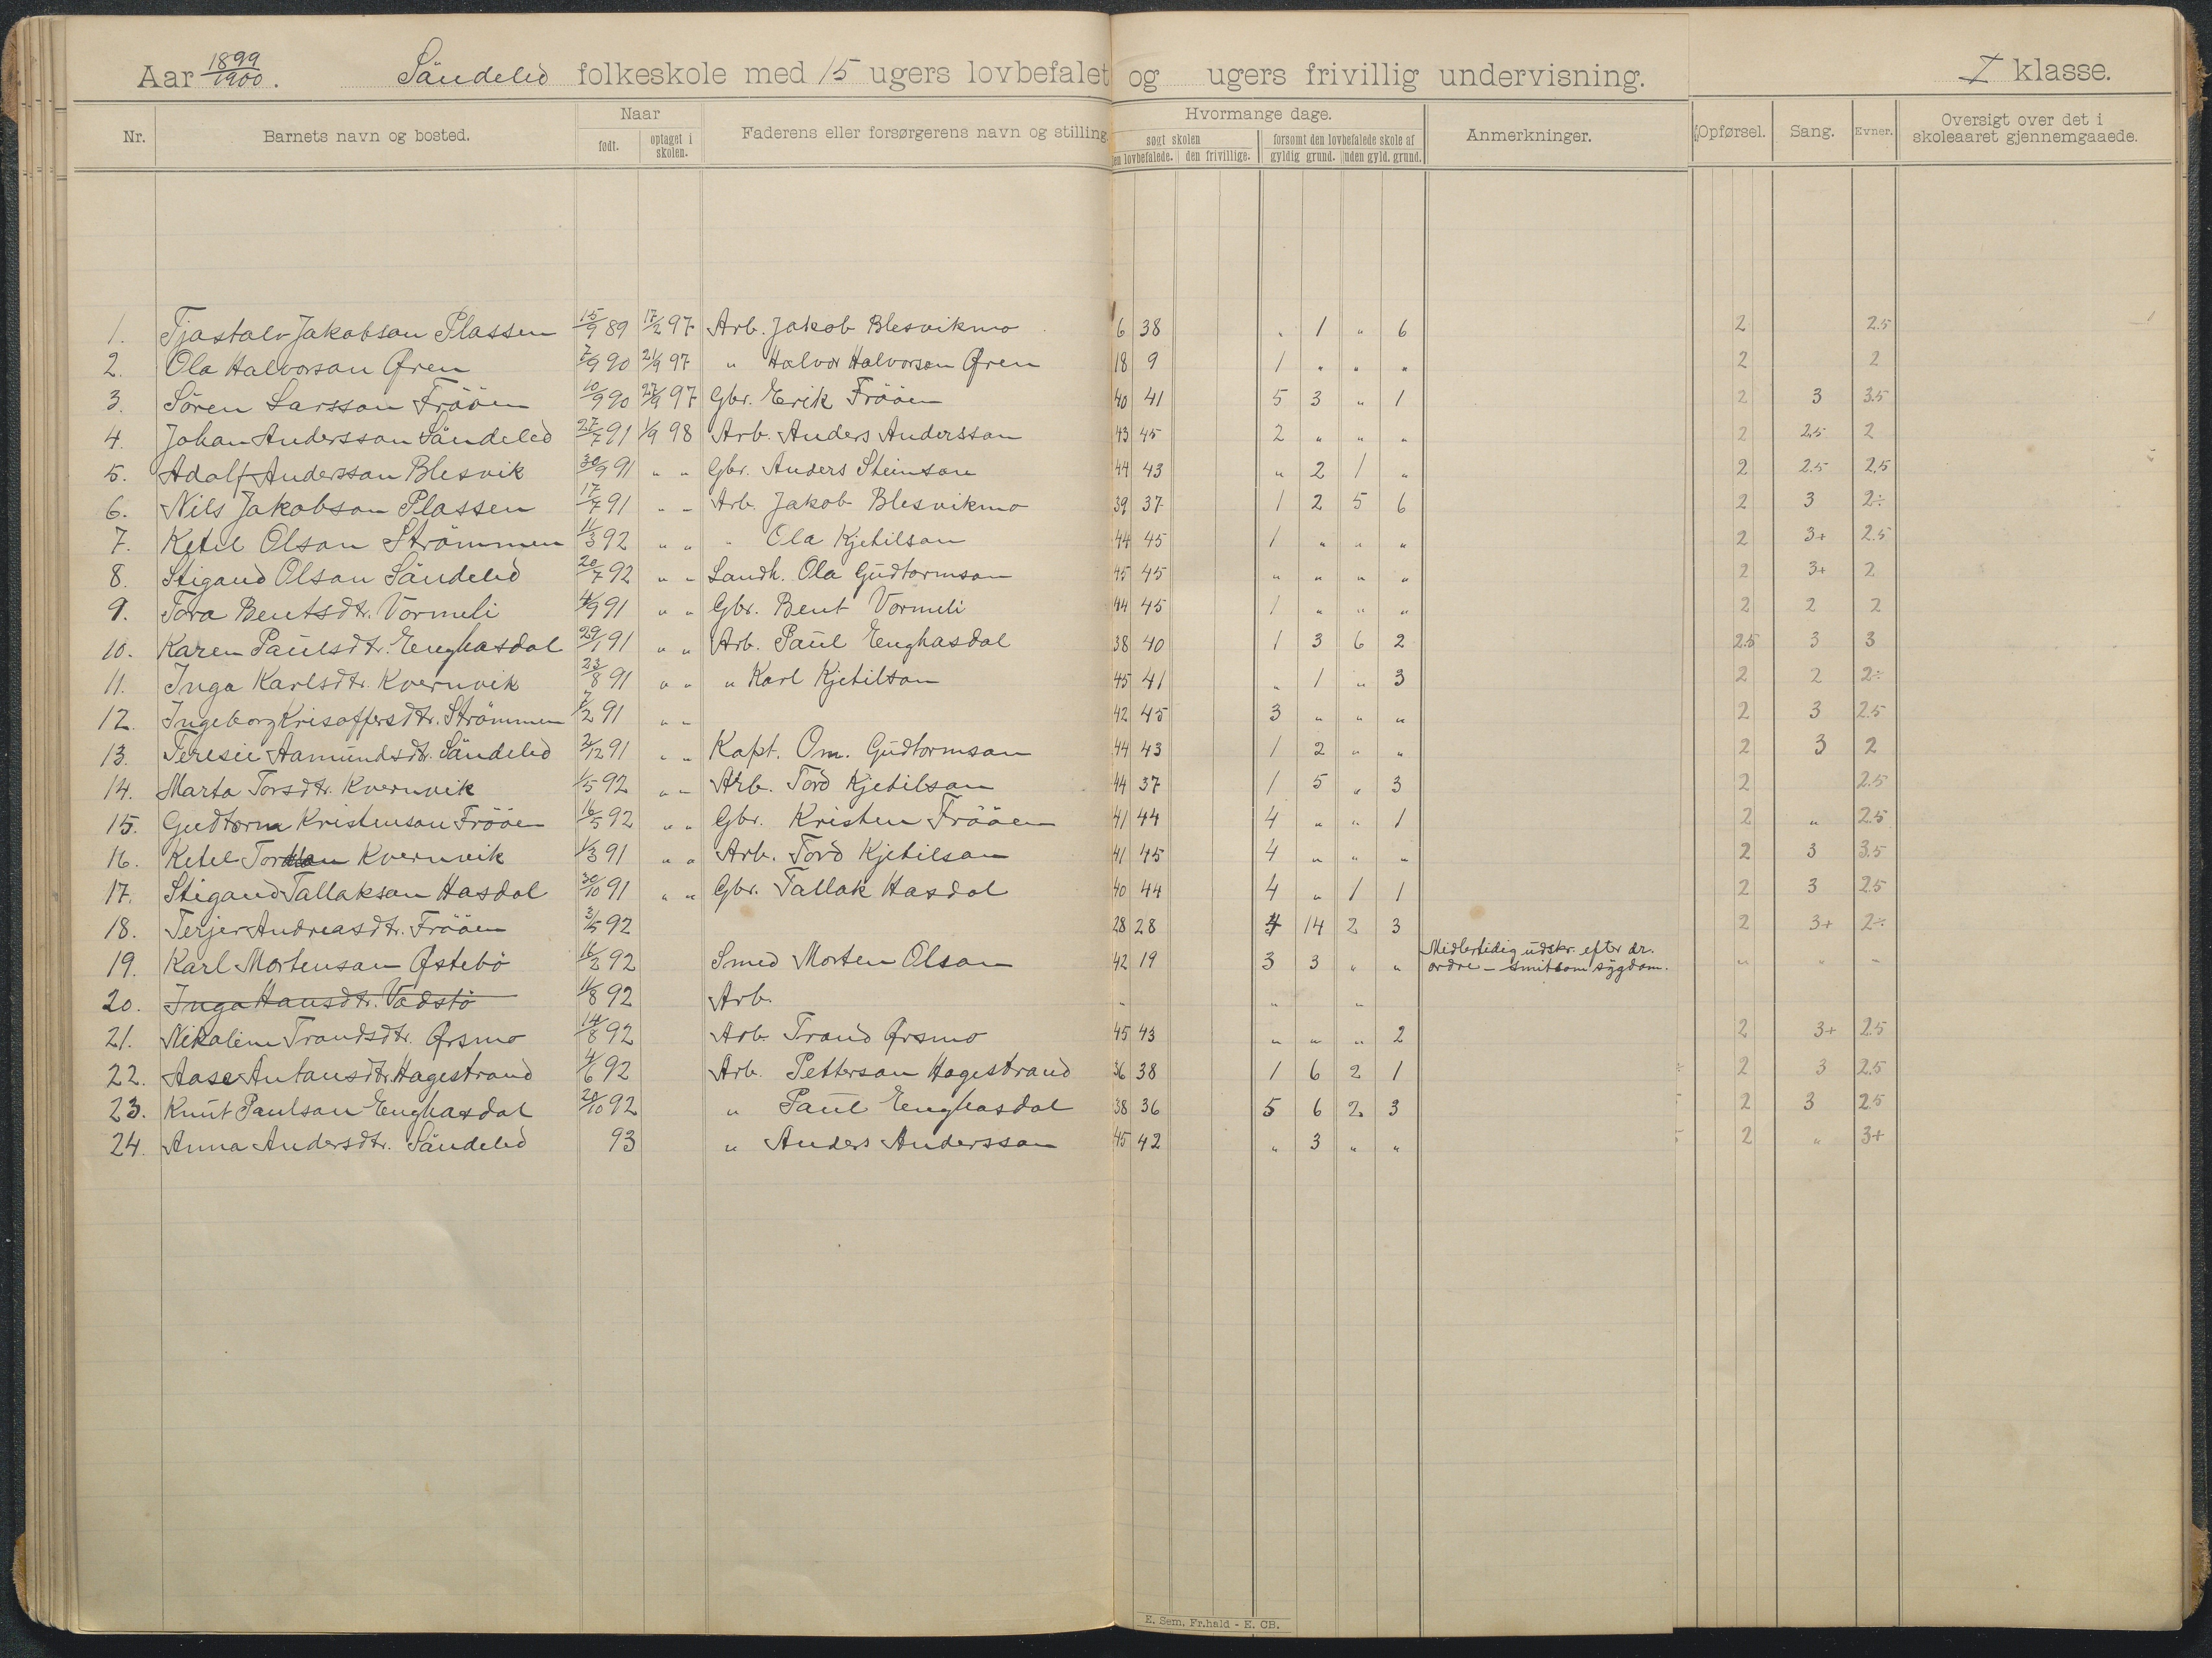 Aar 1899/1900. Söndeled folkeskole med 15 ugers lovbefalet og ugers frivillig undervisning. I klasse.
Nr. Barnets navn og bosted. Naar født. optaget i skolen. Faderens eller forsørgerens navn og stilling. Hvormange dage. søgt skolen den lovbefalede. den frivillige. forsømt den lovbefalede skole af gyldig grund. uden gyld. grund. Anmerkninger. Opførsel. Sang. Evner. Oversigt over det i skoleaaret gjennemgaaede.
1. Tjostolv Jakobson Plassen 15/9 89 17/2 97 Arb. Jakob Blesvikmo 6 38 " 1 " 6 2 2.5
2. Ola Halvorson Øren 7/9 90 21/9 97 " Halvor Halvorson Øren 18 9 1 " " " 2 2
3. Sören Larsson Fröön 10/9 90 27/9 97 Gbr. Erik Fröön 40 41 5 3 " 1 2 3 3.5
4. Johan Andersson Söndeled 27/7 91 1/9 98 Arb. Anders Andersson 43 45 2 " " " 2 2.5 2
5. Adolf Andersson Blesvik 30/9 91 " " Gbr. Anders Steinson 44 43 " 2 1 " 2 2.5 2.5
6. Nils Jakobson Plassen 17/7 91 " " Arb. Jakob Blesvikmo 39 37 1 2 5 6 2 3 2÷
7. Ketil Olson Strömmen 11/3 92 " " " Ola Kjetilson 44 45 1 " " " 2 3+ 2.5
8. Stigand Olson Söndeled 20/7 92 " " Landh. Ola Gudtormson 45 45 " " " " 2 3+ 2
9. Tora Bentsdtr. Vormeli 4/9 91 " " Gbr. Bent Vormeli 44 45 1 " " " 2 2 2
10. Karen Paulsdtr. Enghasdal 29/1 91 " " Arb. Paul Enghasdal 38 40 1 3 6 2 2.5 3 3
11. Inga Karlsdtr. Kvernvik 23/8 91 " " " Karl Kjetilson 45 41 " 1 " 3 2 2 2÷
12. Ingeborg Krisoffersdtr. Strömmen 7/2 91 " " 42 45 3 " " " 2 3 2.5
13. Teresie Aamundsdtr. Söndeled 2/12 91 " " Kapt. Om. Gudtormson 44 43 1 2 " " 2 3 2
14. Marta Torsdtr. Kvernvik 1/5 92 " " Arb. Tord Kjetilson 44 37 1 5 " 3 2 2.5
15. Gudtorm Kristenson Fröön 16/5 92 " " Gbr. Kristen Fröön 41 44 4 " " 1 2 " 2.5
16. Ketel Tordson Kvernvik 1/3 91 " " Arb. Tord Kjetilson 41 45 4 " " " 2 3 3.5
17. Stigand Tallakson Hasdal 30/10 91 " " Gbr. Tallak Hasdal 40 44 4 " 1 1 2 3 2.5
18. Terjer Andreasdtr. Fröön 3/5 92 28 28 4 14 2 3 2 3+ 2÷
19. Karl Mortenson Østebö 16/2 92 Smed Morten Olson 42 19 3 3 " " Midlertidig udskr. efter dr. ordre - smitsom sygdom. " " "
20. Inga Hansdtr. Vadstö 11/8 92 Arb. " " "
21. Nikoline Trondsdtr.Ørsmo 14/8 92 Arb. Trond Ørsmo 45 43 " " " 2 2 3+ 2.5
22. Aase Antonsdtr. Hagestrand 4/6 92 Arb. Petterson Hagestrand 36 38 1 6 2 1 2 3 2.5
23. Knut Paulson Enghasdal 20/10 92 " Paul Enghasdal 38 36 5 6 2 3 2 3 2.5
24. Anna Andersdtr. Söndeled 93 " Anders Andersson 45 42 " 3 " " 2 " 3+
E. Sem, Fr.hald - E. CB.